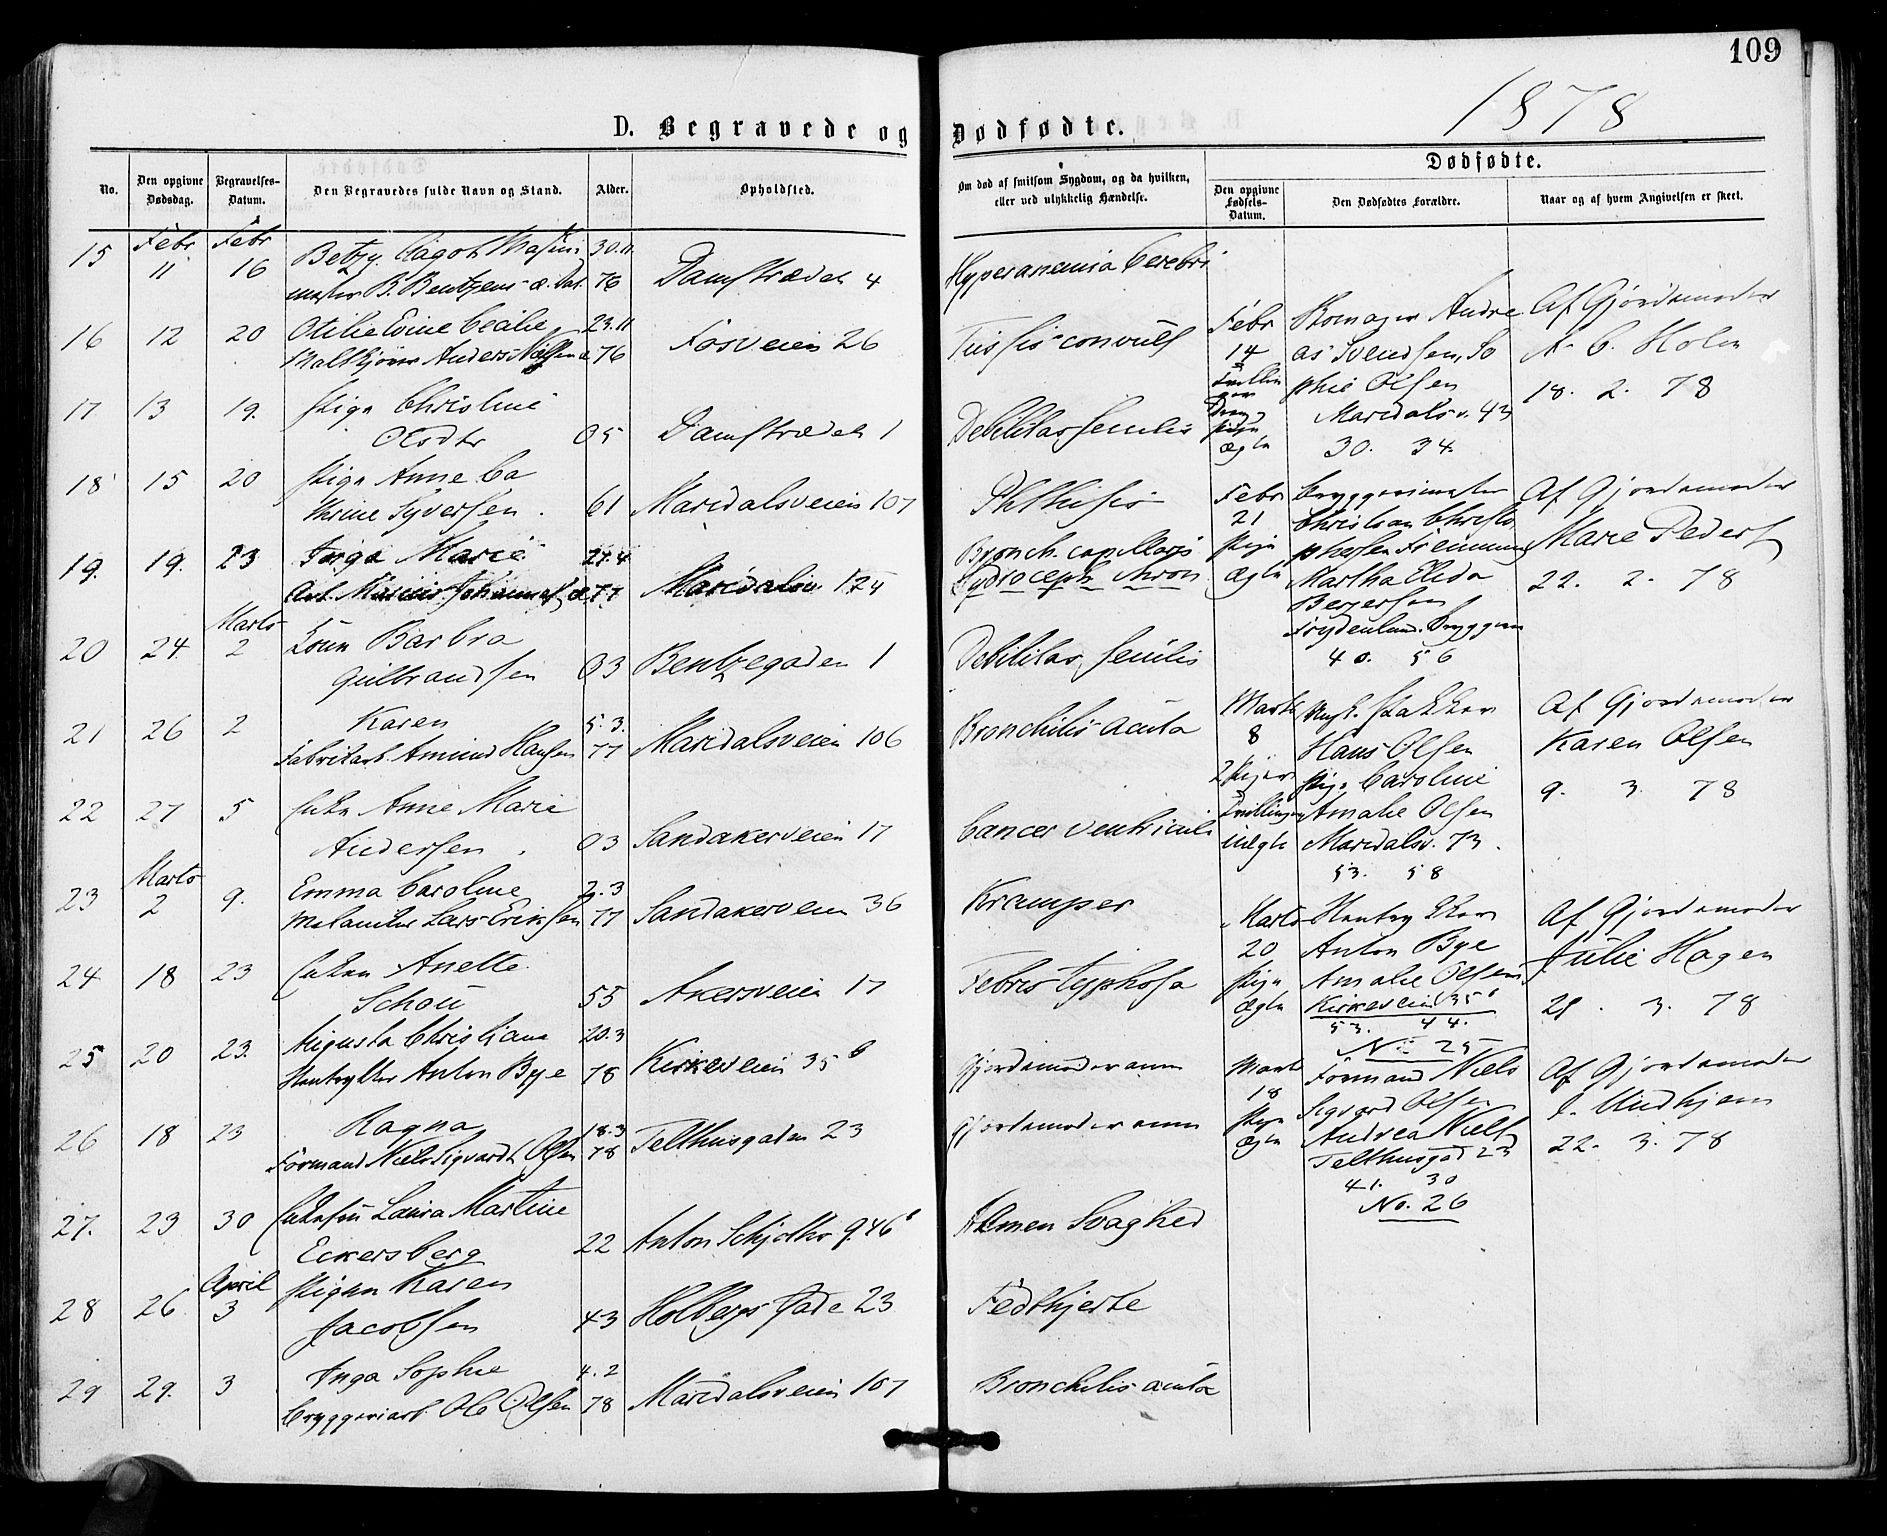 109
1878
D. Begravede og Dødfødte.
Dødfødte.
No.
Den opgivne Dødsdag.
Begravelses-Datum.
Den Begravedes fulde Navn og Stand.
Alder.
Opholdsted.
Om død af smitsom Sygdom, og da hvilken, eller ved ulykkelig Hændelse.
Den opgivne Fødsels-Datum.
Den Dødfødtes Forældre.
Naar og af hvem Angivelsen er skeet.
Febr Febr
15 11 16 Betzy Aagot 30.11
B. Bentzens 76 Damstrædet 4 Hyperanemia Cerebri
16 12 20 Otilie Evine Cecilie 23.11
Anders Nilsen 76 Fosveien 26 Tussis convuls
17 13 19. Pige Christine
Olsdtr 05 Damstrædet 1 Debilitas senilis
18 15 20 Pige Anne Ca
thrine Syversen. 61 Maridalsveien 107 Phthisis
19. 19. 23 Inga Marie 27.4 Bronch. capillaris
Arb. 77 Maridalsv 124 Hydroceph chron
Marts
20 24. 2 Enun Barbra
Gulbrandsen 03 Bentzegaden 1 Debilitas senilis
21 26 2 Karen 5.3.
Fabrikarb. Amund Hansen 77 Maridalsveien 106 Bronchitis acuta
22 27 5 Enke Anne Marie
Andersen. 03 Sandakerveien 17 Cancer ventriculi
Marts
23 2 9. Emma Caroline 2.3
Lars Eriksen 77 Sandakerveien 36 Kramper
24 18 23 Enken Anette
Schou 55 Akersveien 17 Febris typhosa
25 20 23. Augusta Christiane 20.3
Anton Bye 78 Kirkeveien 35 b Gjordemoderanm
26 18 23 Ragna 18.3
Formand Niels Sigvardt Olsen 78 Telthusgaden 23 Gjordemoderanm
27. 23 30 Laura Martine
Eckersberg 22 Anton Schjøths g. 46 b Almen Svaghed
April
28 26 3 Pigen Karen
Jacobsen 43 Holbergs Gade 23 Fedthjerte
29 29. 3 Inga Sophie 4.2
Bryggeriarb. Ole Olsen 78 Maridalsveien 107 Bronchitis acuta
Febr
14
Tvillin
ger
Dreng
Pige
Ægte
Skomager Andre
as Svendsen, So
phie Olsen
Maridalsv. 43
30. 34.
Af Gjordemoder
A. C. Holm
18. 2. 78
Febr
21
Pige
Ægte
Bryggerimester
Christian Christo
phersen
Martha Elida
Bergersen
Frydenlund. Bryggeri
40. 56
Af Gjordemoder
Marie Peders
22. 2. 78
Marts
8
2 Piger
Tvillinger
uægte
Ungk.
Hans Olsen
Pige Caroline
Amalie Olsen
Maridalsv. 73.
53. 58
Af Gjordemoder
Karen Olsen
9. 3. 78
Marts
20
Pige
Ægte
Anton Bye
Amalie Olsen
Kirkeveien 35 b
53. 44.
No 25
Af Gjordemoder
Julie Hagen
29. 3. 78
Marts
18
Pige
Ægte
Formand Niels
Sigvard Olsen
Andrea Niels
Telthusgad 23
41. 30
No. 26
Af Gjordemoder
22. 3. 78